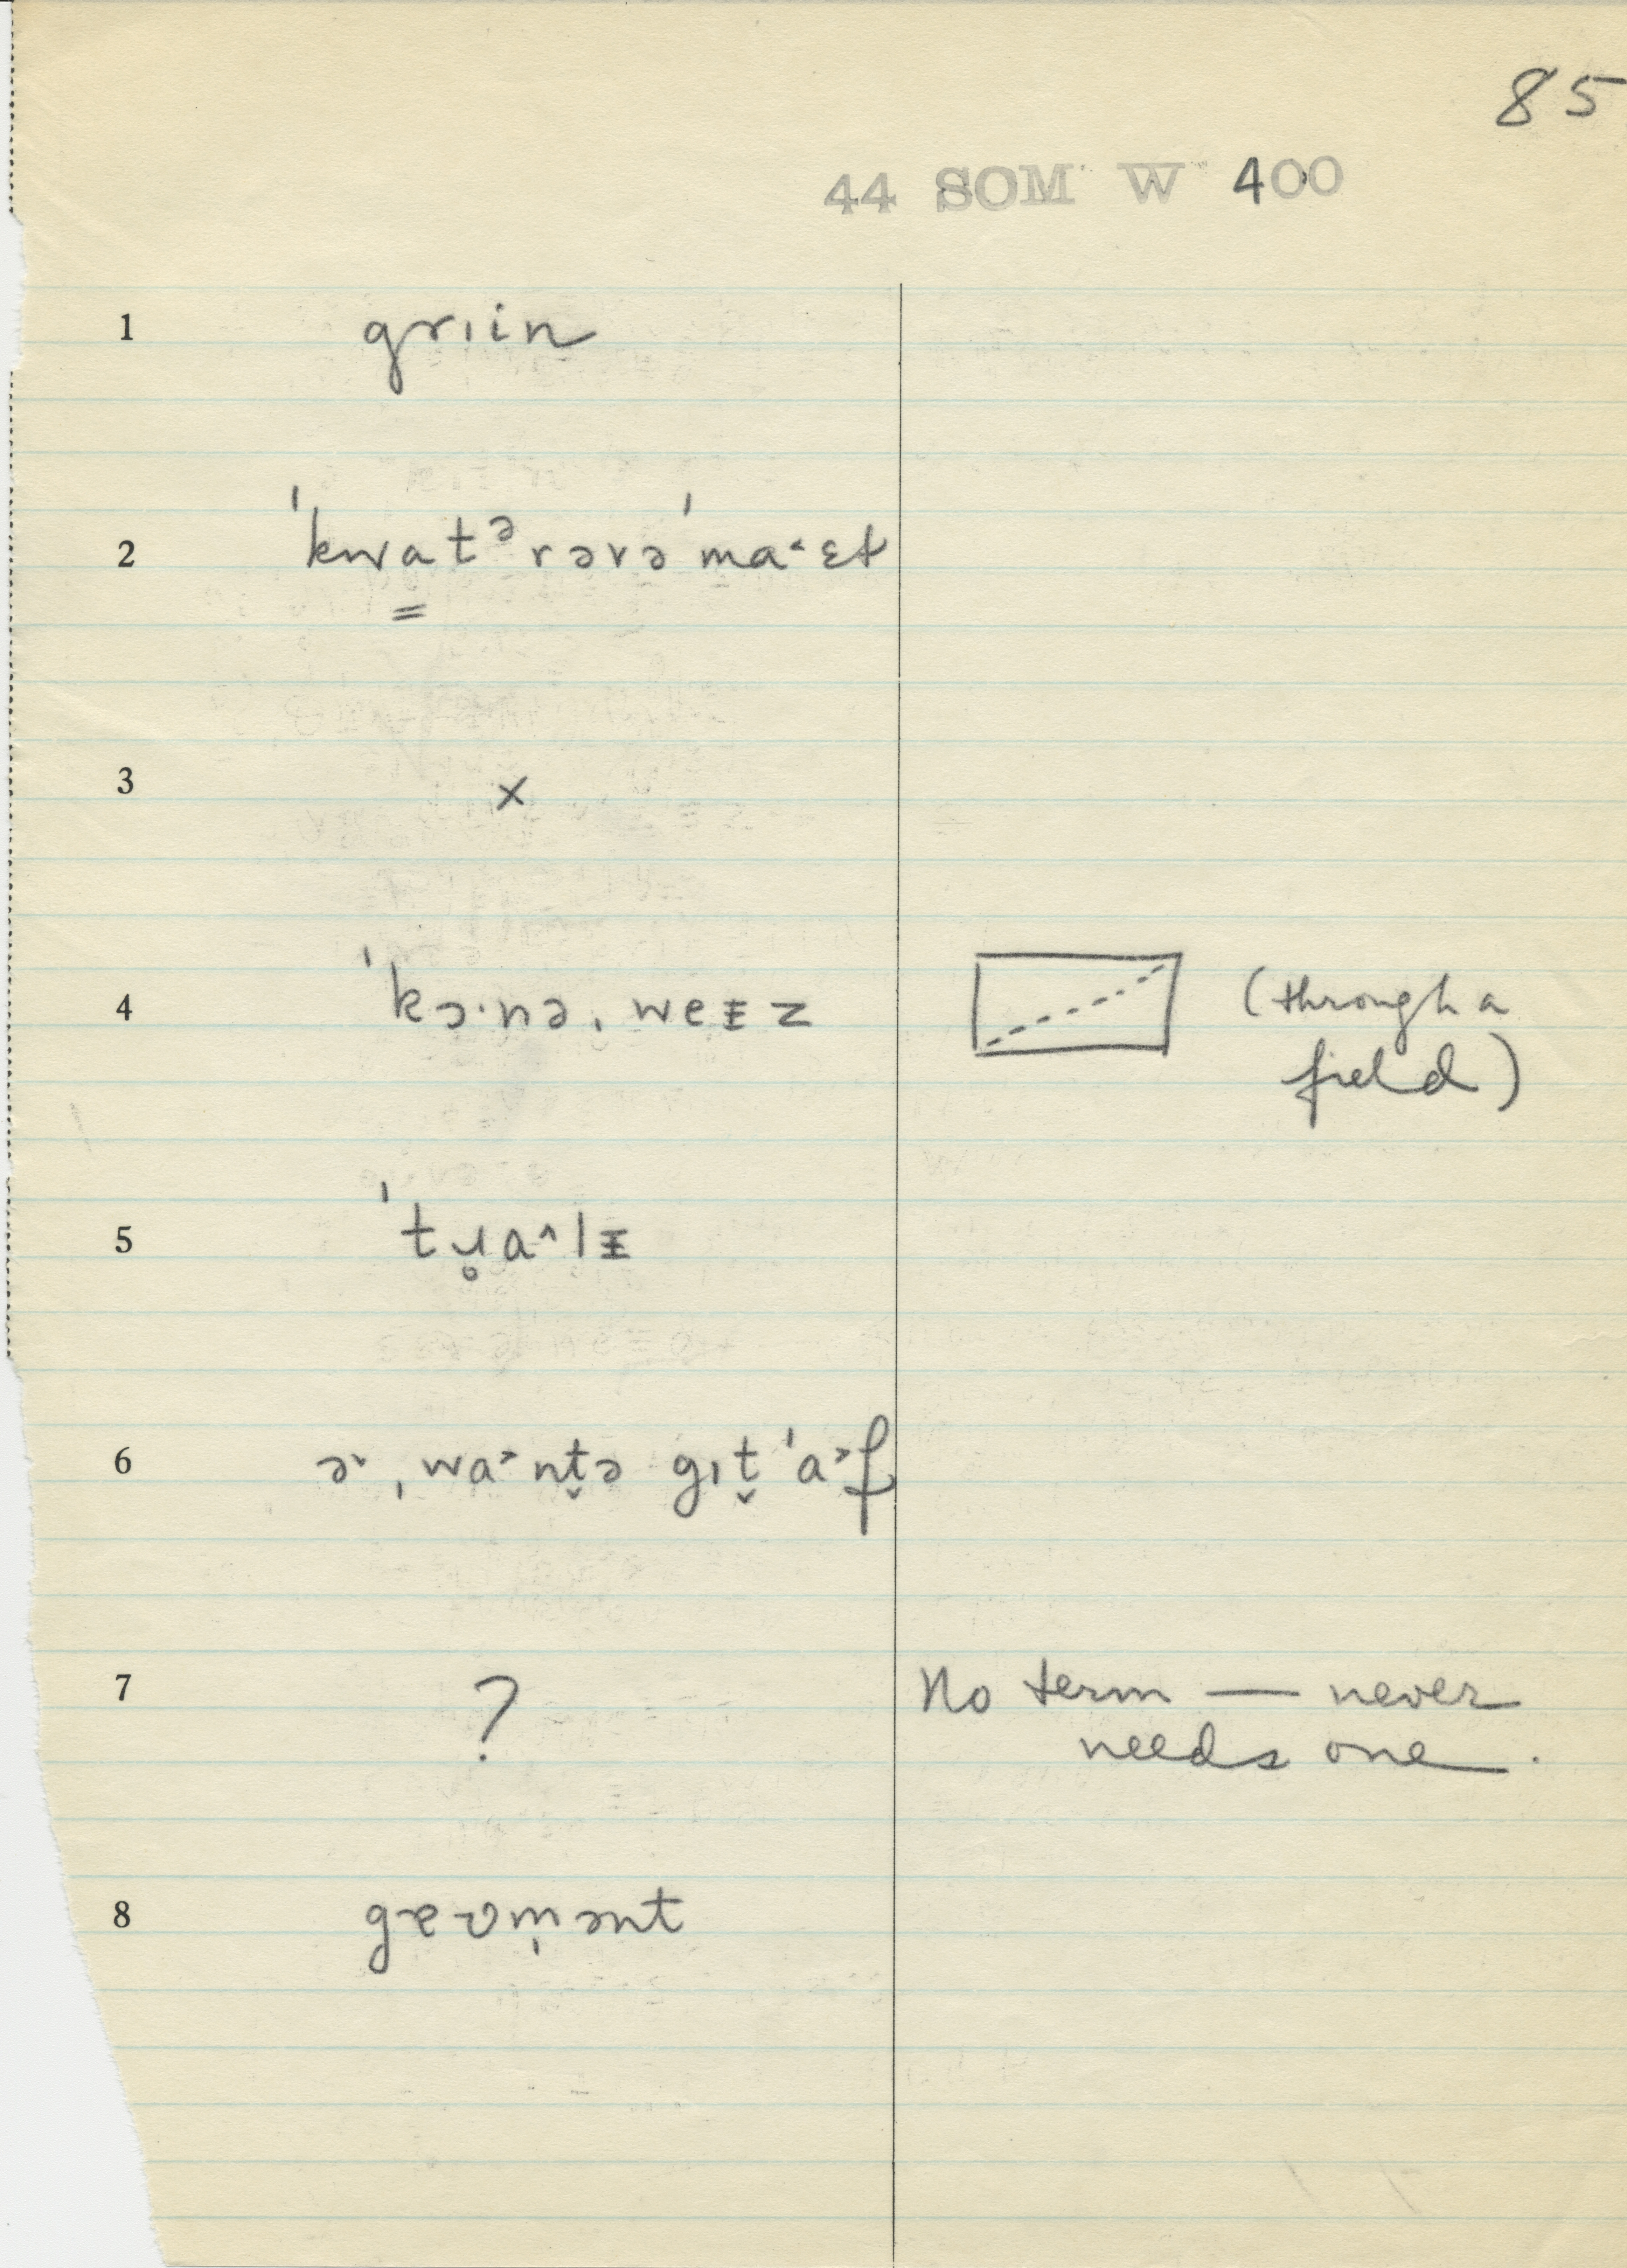 85
44 SOM W 400
1 grɪin
2 ˈkwa̳tᵊrərəˈma˂ɛt
3 ×
4 ˈkɔ·nəˌweᵻz (through a
field)
5 ˈtɹ̥a^lᵻ
6 ə˞ ˌwa˃nt̬ə gɪt̬ ˈa˃f
7 ? No term — never
needs one.
8 gɐʊm̩ənt